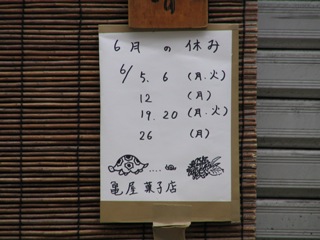 6月の休み
6/5.6(月.火)
12(月)
19.20(月.火)
26(月)
亀屋菓子店